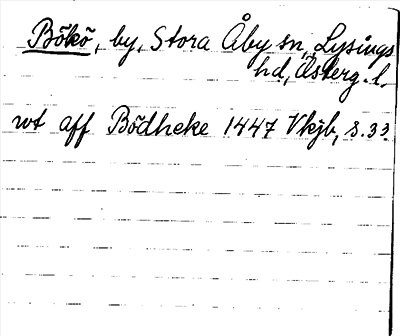 Bökö, by, Stora Åby sn, Lysings
hd, Österg. l.
wt aff Bödheke 1447 Vkjb, s. 33